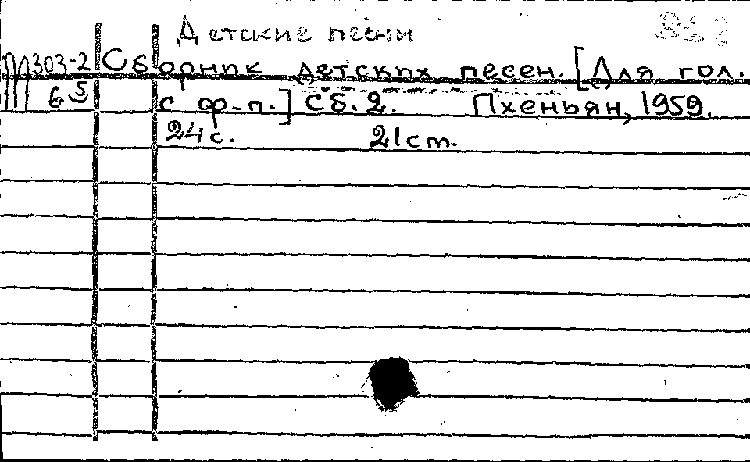 Детские песни
303-2 Сборник детских песен. [Для гол.
65 с ф-п.] Сб. 2. Пхеньян, 1959.
24 с. 21 cm.